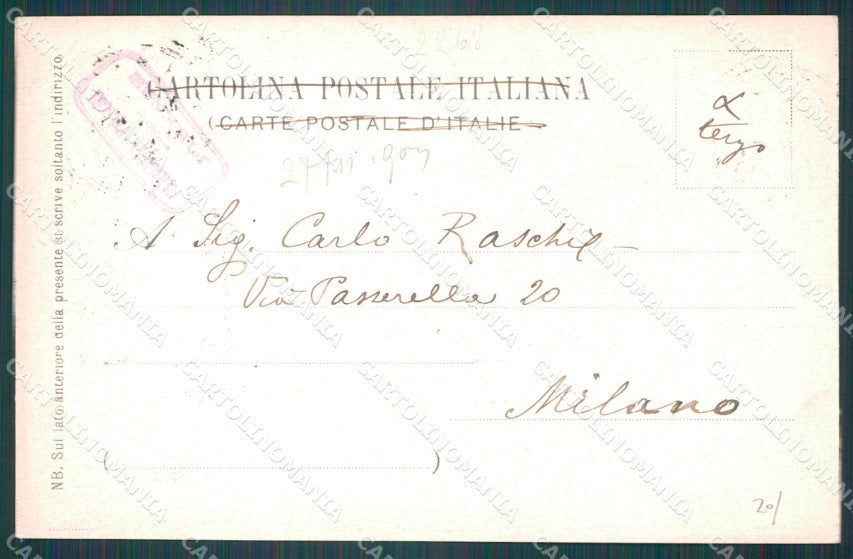 2268
CARTOLINA POSTALE ITALIANA
(CARTE POSTALE D'ITALIE)
tergo
A Sig. Carlo
Via Passerella 20
Milano
( )
20/
NB. Sul lato anteriore della presente si scrive soltanto l'indirizzo.
CARTOLINOMANIA